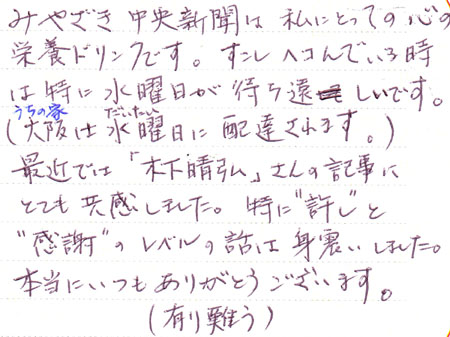 みやざき中央新聞は私にとっての心の
栄養ドリンクです。すこしヘコんでいる時
は特に水曜日が待ち遠しいです。
うちの家 だいたい
(大阪は水曜日に配達されます。)
最近では「木下晴弘」さんの記事に
とても共感しました。特に"許し"と
"感謝"のレベルの話は身震いしました。
本当にいつもありがとうございます。
(有り難う)